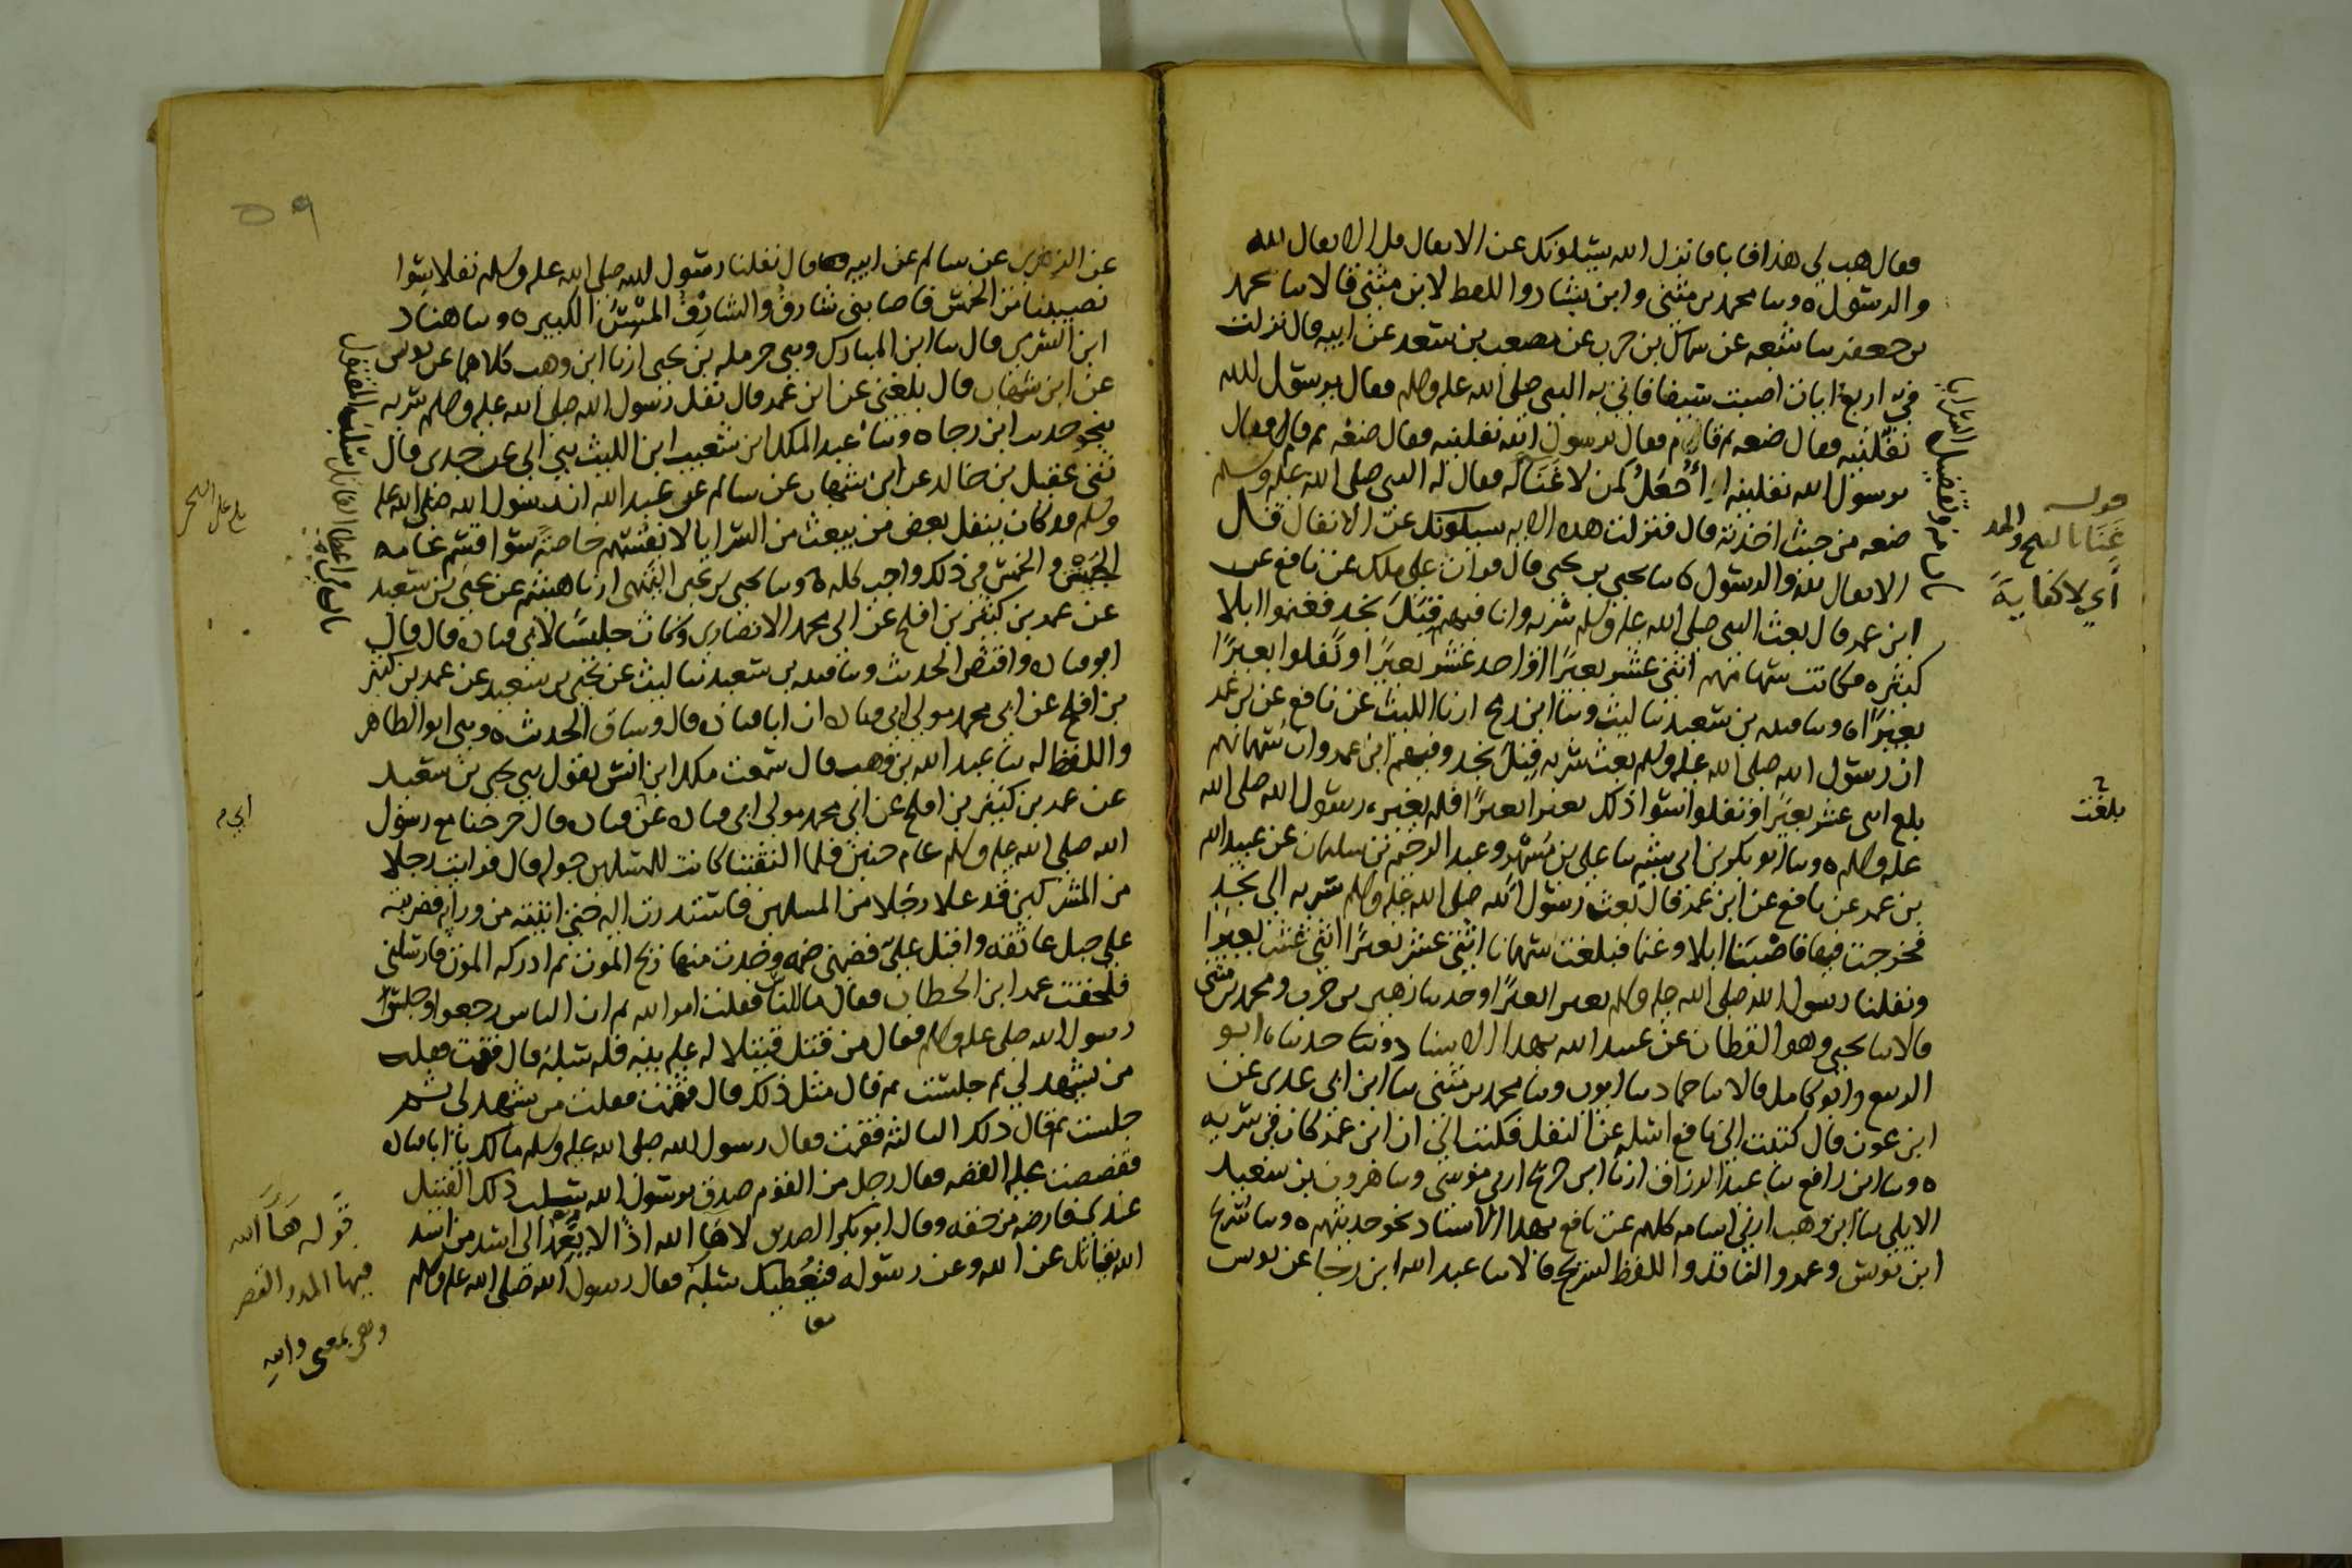 فقال هب لي هذا فابا فانزل الله يسئلونك عن الانفال قل الانفال لله
والرسول ه وسا محمد بن مثنى وابن بشار واللفظ لابن مثنى قالا سا محمد
بن جعفر سا شعبه عن سماك بن حرب عن مصعب بن سعد عن ابيه قال نزلت
في اربع ايات اصبت سيفا فاتي به النبي صلى الله عليه وسلم فقال يرسول الله
نفلنيه فقال ضعه ثم قام فقال يرسول الله نفلنيه فقال ضعه ثم قام فقال
يرسول الله نفلنيه أَأُجْعَلُ كمن لا غَنَاَ له فقال له النبي صلى الله عليه وسلم
ضعه من حيث اخذته قال فنزلت هذه الايه يسئلونك عن الانفال قل
الانفال لله والرسول ه سا يحيى بن يحيى قال قرات على ملك عن نافع عن
ابن عمر قال بعث النبي صلى الله عليه وسلم سريه وانا فيهم قِبَلَ نجد فغنموا ابلا
كثيره فكانت سهمانهم اثنى عشر بعيرًا او احد عشر بعيرًا ونُفلوا بعيرًا
بعيرًا ه وسا قتيبه بن سعيد سا ليث وسا ابن رمح ارنا الليث عن نافع عن بن عمر
ان رسول الله صلى الله عليه وسلم بعث سريه قِبَلَ نجد وفيهم ابن عمر وان سهمانهم
بلغ اثنى عشر بعيرًا ونفلوا سوا ذلك بعيرا بعيرًا فلم يغيره رسول الله صلى الله
عليه وسلم ه وسا ابو بكر بن ابي شيبه سا علي بن مُسْهِر وعبد الرحيم بن سليمان عن عبيد الله
بن عمر عن نافع عن ابن عمر قال بعث رسول الله صلى الله عليه وسلم سريه الى نجد
فخرجت فيها فاصْبَنا ابلا وغنما فبلغت سهماننا اثنى عشر بعيرًا اثنى عشر بعيرًا
ونفلنا رسول الله صلى الله عليه وسلم بعيرا بعيرًا وحدثنا زهير بن حرب ومحمد بن مثنى
قالا سا يحيى وهو القطان عن عبيد الله بهذا الاسناد وسا حدثناه ابو
الربيع وابو كامل قالا سا حماد سا ايوب وسا محمد بن مثنى سا ابن ابي عدي عن
ابن عون قال كتبت الى نافع اسئله عن النفل فكتب الي ان ابن عمر كان في سريه
ه وسا ابن رافع سا عبد الرزاق ارنا ابن جريج ارنى موسى وسا هرون بن سعيد
الايلي سا ابن وهب ارني اسامه كلهم عن نافع بهذا الاسناد نحو حديثهم ه وسا سريج
ابن يونس وعمرو الناقد واللفظ لسريج قالا سا عبد الله ابن رجا عن يونس
قوله
غَنَا بالفتح والمد
أي لا كفايةَ
بلغت
٥٩
عن الزهري عن سالم عن ابيه قال نفلنا رسول الله صلى الله عليه وسلم نفلا سوا
نصيبنا من الخمس فاصابني شارفٌ والشارفُ المسِنُّ الكبير ه وسا هناد
ابن السري قال سا ابن المبارك وسى حرمله بن يحيى ارنا ابن وهب كلاهما عن يونس
عن ابن شهاب قال بلغني عن ابن عمر قال نفل رسول الله صلى الله عليه وسلم سريه
بنحو حديث ابن رجا ه وسا عبد الملك ابن شعيب ابن الليث سى ابي عن جدي قال
سى عقيل بن خالد عن ابن شهاب عن سالم عن عبد الله ان رسول الله صلى الله عليه
وسلم قد كان ينفل بعض من يبعث من السرايا لانفسهم خاصةً سوا قسم عامه
الجيش والخمس في ذلك واجب كله ه وسا يحيى بن يحيى التميمي ارنا هشيم عن يحيى بن سعيد
عن عمر بن كثير بن افلح عن ابي محمد الانصاري وكان جليسًا لابي قتاده قال قال
ابو قتاده واقتص الحديث وسا قتيبه بن سعيد سا ليث عن يحيى بن سعيد عن عمر بن كثير
بن افلح عن ابي محمد مولى ابي قتاده ان ابا قتاده قال وساق الحديث ه وسى ابو الطاهر
واللفظ له سا عبد الله بن وهب قال سمعت ملك ابن انس يقول سى يحيى بن سعيد
عن عمر بن كثير بن افلح عن ابي محمد مولى ابي قتاده عن قتاده قال خرجنا مع رسول
الله صلى الله عليه وسلم عام حنين فلما التقينا كانت للمسلمين جوله قال فرايت رجلا
من المشركين قد علا رجلا من المسلمين فاستدرت اليه حتى اتيته من ورايه فضربته
على حبل عاتقه واقبل عليّ فضمني ضمه وجدت منها ريح الموت ثم ادركه الموت فارسلني
فلحقت عمر ابن الخطاب فقال ما للناس فقلت امر الله ثم ان الناس رجعوا وجلس
رسول الله صلى عليه وسلم فقال من قتل قتيلا له عليه بينه فله سلبه قال فقمت فقلت
من يشهد لي ثم جلست ثم قال مثل ذلك قال فقمت فقلت من يشهد لي ثم
جلست ثم قال ذلك الثالثه فقمت فقال رسول الله صلى الله عليه وسلم مالك يا ابا قتاده
فقصصت عليه القصه فقال رجل من القوم صدق يرسول الله سلب ذلك القتيل
عندي فارضه من حقه وقال ابو بكر الصديق لا هَا الله اذًا لا يَعْمِدُ الى اسد من اسد
الله يقاتل عن الله وعن رسوله فيُعْطيك سلبَه فقال رسول الله صلى الله عليه وسلم
أبي م
قوله هَا الله
فيها المد والقصر
وهي بمعنى والله